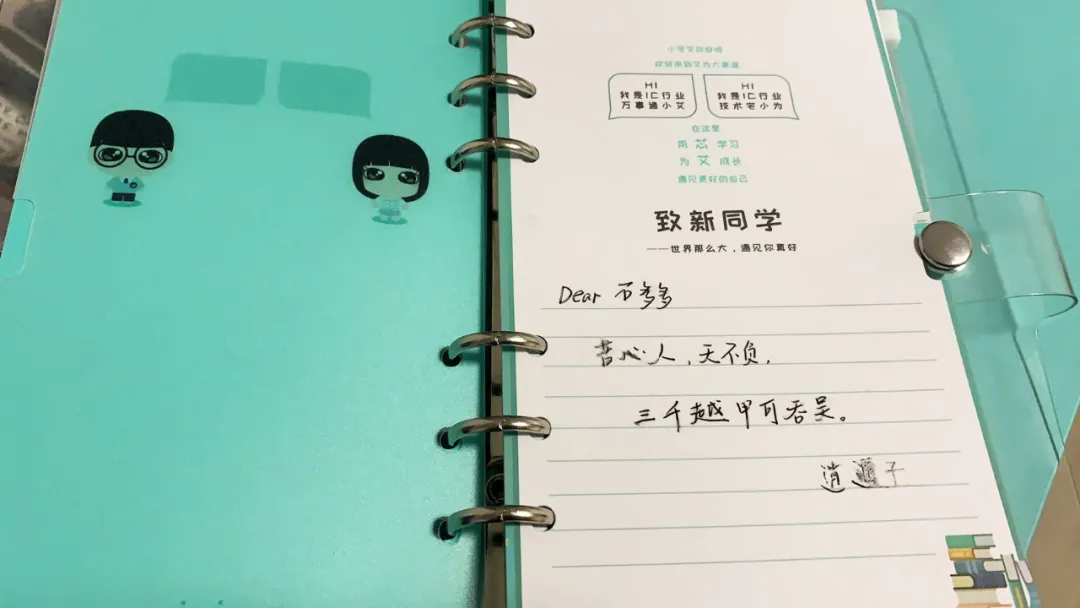 欢迎来到艾为大家庭
HI
我是IC行业
万事通小艾
HI
我是IC行业
技术宅小为
在这里
用 芯 学习
为 艾 成长
遇见更好的自己
致新同学
——世界那么大，遇见你真好
Dear 石多多
苦心人，天不负，
三千越甲可吞吴。
逍 子